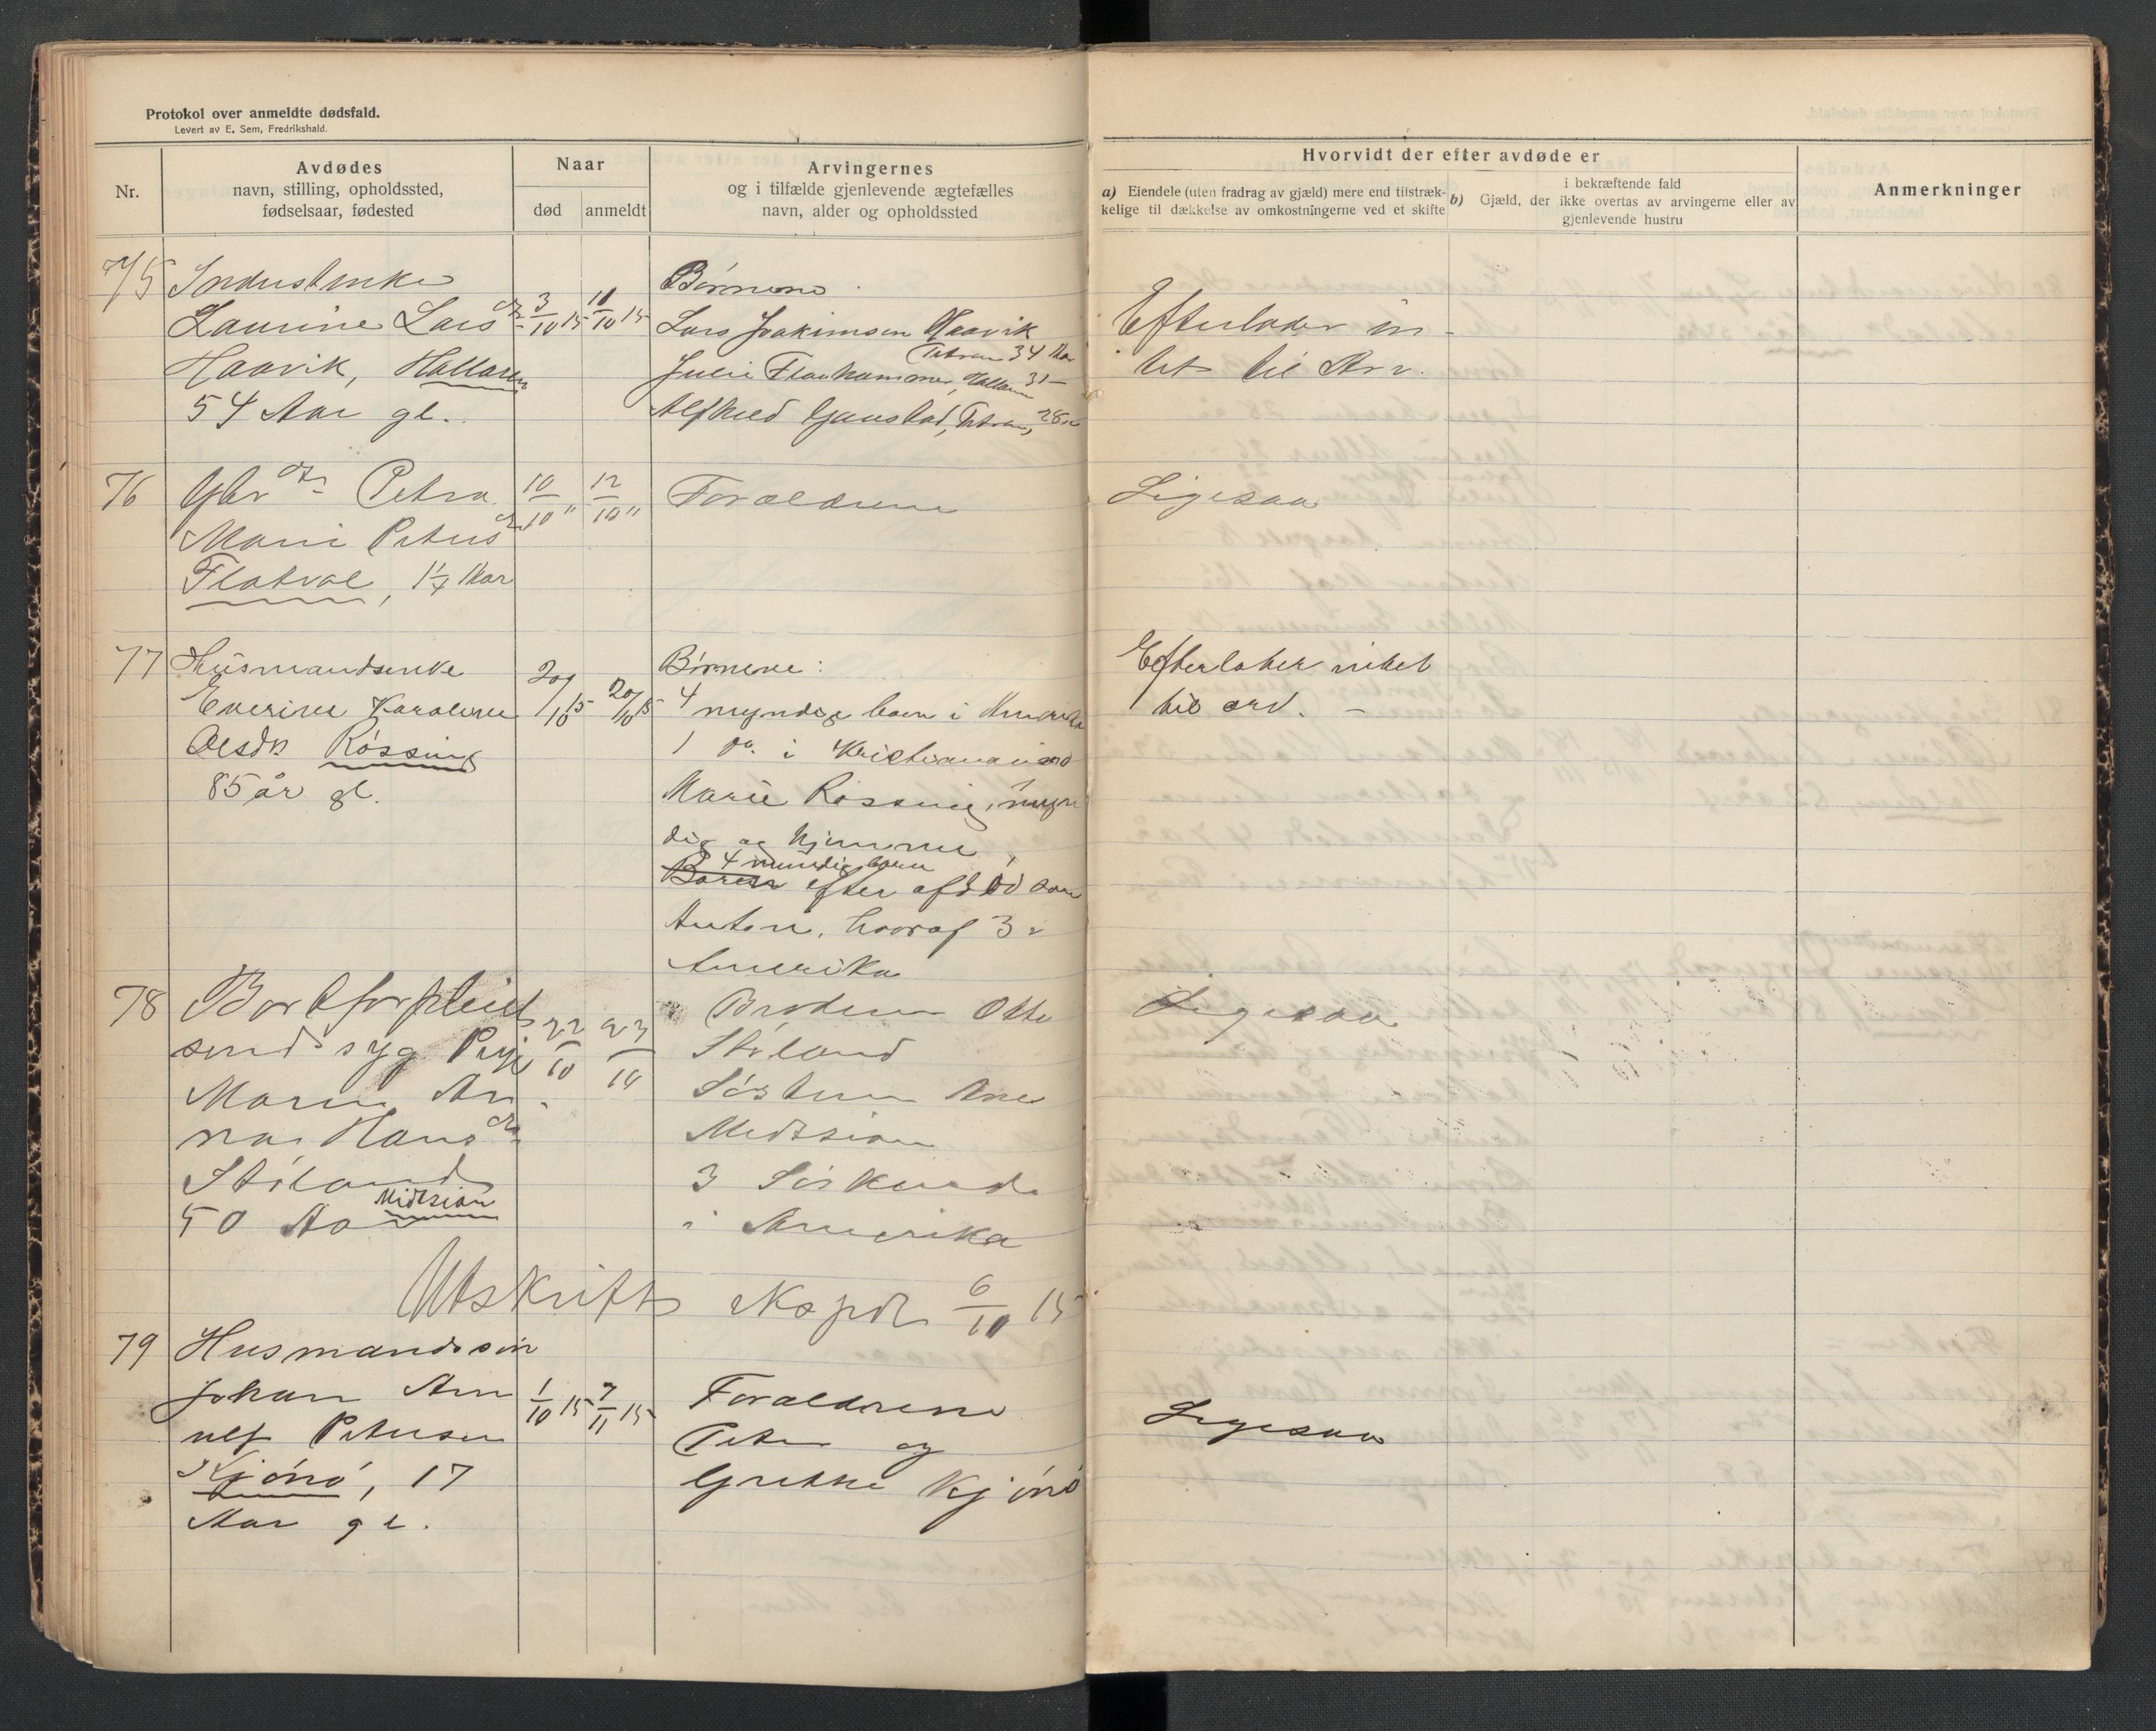 Protokol over anmeldte dødsfald.
Levert av E. Sem, Fredrikshald.
Nr.
Avdødes
navn, stilling, opholdssted,
fødselsaar, fødested
Naar
død
anmeldt
Arvingernes
og i tilfælde gjenlevende ægtefælles
navn, alder og opholdssted
Hvorvidt der efter avdøde er
a) Eiendele (uten fradrag av gjæld) mere end tilstræk-
kelige til dækkelse av omkostningerne ved et skifte
i bekræftende fald
b) Gjæld, der ikke overtas av arvingerne eller av
gjenlevende hustru
Anmerkninger
75
Laurine Lars dr
Haavik, Hallaren
54 Aar gl.
3/10 15
10/10 15
Børnene
Lars Joakimsen Haavik
Titran 34 Aar
Julie Flaahammer, Hallaren 31 –
Alfhild Gjønstad, Titran, 28 –
Efterlader in-
tet til Arv.
76
Gbr dr Petra
Marie Peters dr
Flatval, 1 1/4 Aar
10/10 "
12/10 "
Forældrene
Ligesaa
77
Husmandsenke
Everine Karoline
Olsdtr Røssing
85 år gl.
20/10 15
20/10 15
Børnene:
4 myndige barn i Amerika
1 do. i Kristiansund
Marie Røssing, myn
dig og hjemme,
4 myndige barn
Barn efter afdød søn
Anton, hvoraf 3 i
Amerika
Efterlater intet
til arv. –
78
Bortforpleiet
sindssyg Pige
Maren An-
na Hans dr
Støland
Midtsian
50 Aar
22/10
23/10
Broderen Otto
Støland
Søsteren Ane
Midtsian
3 Søskende
i Amerika
Ligesaa
Utskrift Kapt 6/10 15
79
Husmandssøn
Johan Arn
ulf Petersen
Kjønø, 17
Aar gl.
1/10 15
7/11 15
Forældrene
Peter og
Grethe Kjønø
Ligesaa